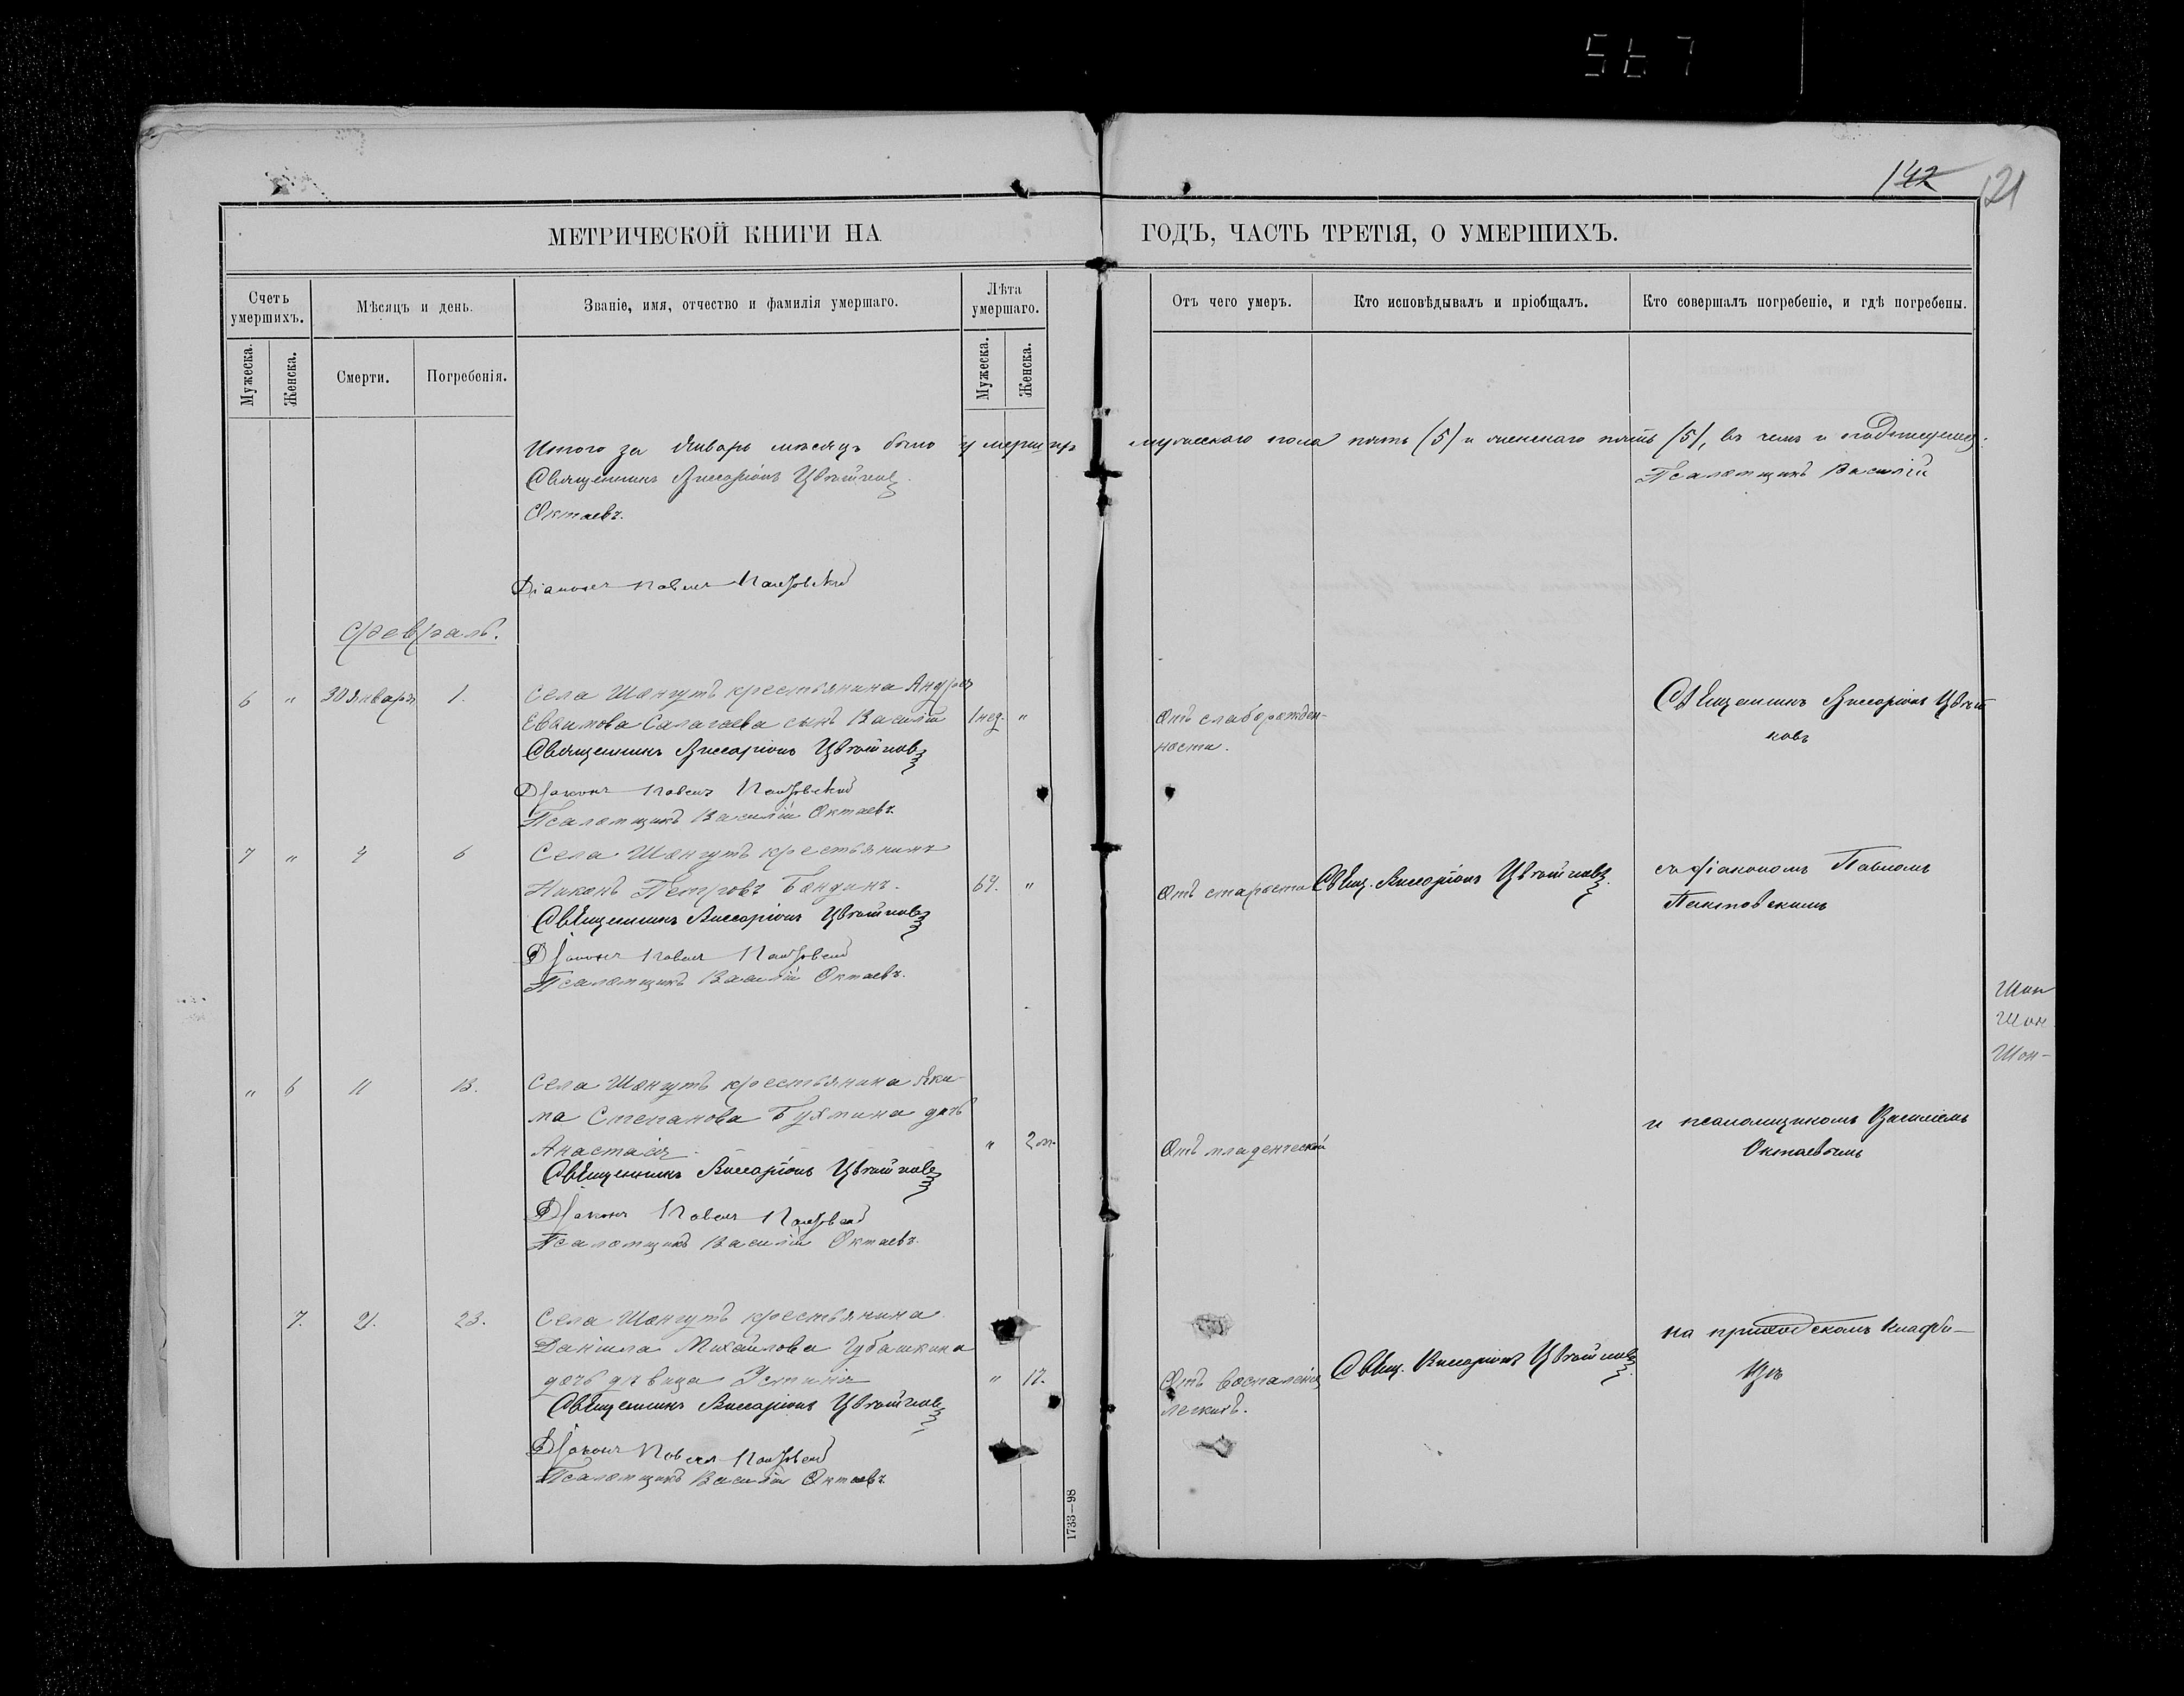 142 121
МЕТРИЧЕСКОЙ КНИГИ НА ГОДЪ, ЧАСТЬ ТРЕТІЯ, О УМЕРШИХЪ.
Счетъ умершихъ.
Мѣсяцъ и день.
Званіе, имя, отчество и фамилія умершаго.
Лѣта умершаго.
Отъ чего умеръ.
Кто исповѣдывалъ и пріобщалъ.
Кто совершалъ погребеніе, и гдѣ погребены.
Мужеска.
Женска.
Смерти.
Погребенія.
Мужеска.
Женска.
Итого за Январь мѣсяцъ было умершихъ мужескаго пола пять (5) и женскаго пять (5), въ чемъ и
Священникъ Виссаріонъ Цвѣтковъ Псаломщикъ Василій
Октаевъ.
Діаконъ Павелъ
Февраль.
6 " 30 Января 1. Села Шангутъ крестьянина Андрея
Евдимова Салагаева сынъ Василій 1 нед. " Отъ слаборожден-
ности.
Священникъ Виссаріонъ Цвѣт
ковъ
Священникъ Виссаріонъ Цвѣтковъ
Діаконъ Павелъ
Псаломщикъ Василій Октаевъ.
7 " 4 6 Села Шангутъ крестьянинъ
Никонъ Петровъ Бандинъ. 64. " Отъ старости Свящ. Виссаріонъ Цвѣтковъ. съ діакономъ Павломъ
Священникъ Виссаріонъ Цвѣтковъ
Діаконъ Павелъ
Псаломщикъ Василій Октаевъ.
Шан
Шан
Шан-
" 6 11 13. Села Шангутъ крестьянина Яки-
ма Степанова Бухмина дочь
Анастасія. " 2 м. Отъ младенческой
и псаломщикомъ Василіемъ
Октаевымъ
Священникъ Виссаріонъ Цвѣтковъ
Діаконъ Павелъ
Псаломщикъ Василій Октаевъ.
7. 21. 23. Села Шангутъ крестьянина
Даніила Михайлова Губашкина
дочь дѣвица Устинія " 17. Отъ воспаленія
легкихъ.
Свящ. Виссаріонъ Цвѣтковъ.
на приходскомъ кладби-
щѣ
Священникъ Виссаріонъ Цвѣтковъ
Діаконъ Павелъ
Псаломщикъ Василій Октаевъ.
1733—98